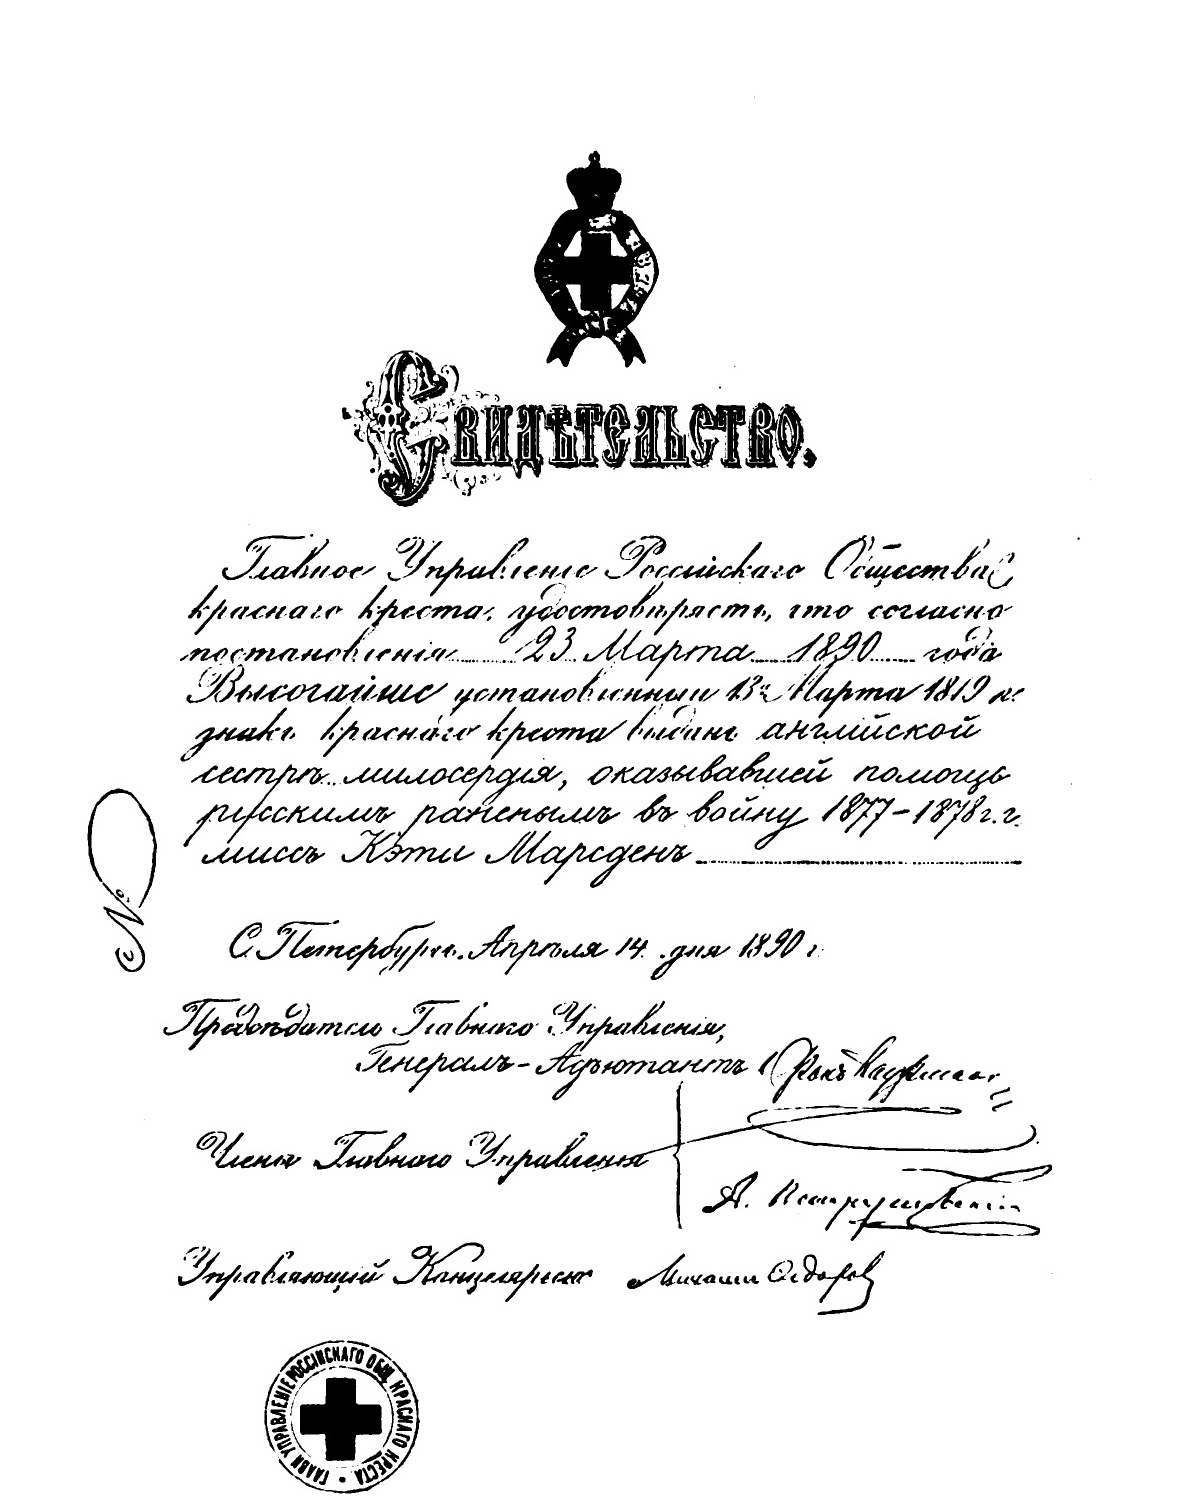 Свидѣтельство.
Главное Управленіе Россійскаго Общества
краснаго креста, удостовѣряетъ, что согласно
постановленія 23 Марта 1890 года
Высочайше установленный 13го Марта 1879 г.
знакъ краснаго креста выданъ английской
сестрѣ милосердія, оказывавшей помощь
русскимъ раненымъ въ войну 1877-1878 г.г.
миссъ Кэти Марсденъ
№
С. Петербургъ. Апрѣля 14 дня 1890 г.
Предсѣдатель Главнаго Управленія,
Генералъ-Адъютантъ фонъ Кауфманъ
Члены Главнаго Управленія
А.
Управляющій Канцеляріею Михаилъ Федоровъ
ГЛАВН УПРАВЛЕНІЕ РОССІЙСКАГО ОБЩ. КРАСНАГО КРЕСТА